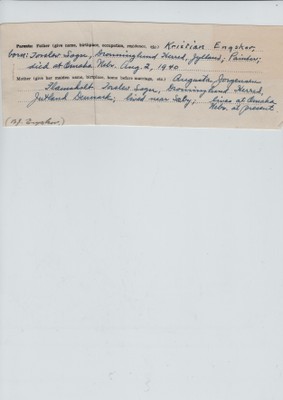 Parents: Father (give name, birthplace, occupation, residence, etc.) Kristian Engskov,
born: Torslev Sogn, Dronninglund Herred, Jylland; Painter;
died at Omaha Nebr. Aug. 2, 1940
Mother (give her maiden name, birthplace, home before marriage, etc.) Augusta Jorgensen
Torslev Sogn, Dronninglund Herred,
Jutland Denmark; lived near Saby, lives at Omaha
Nebr. at present
(A.J. Engskov)